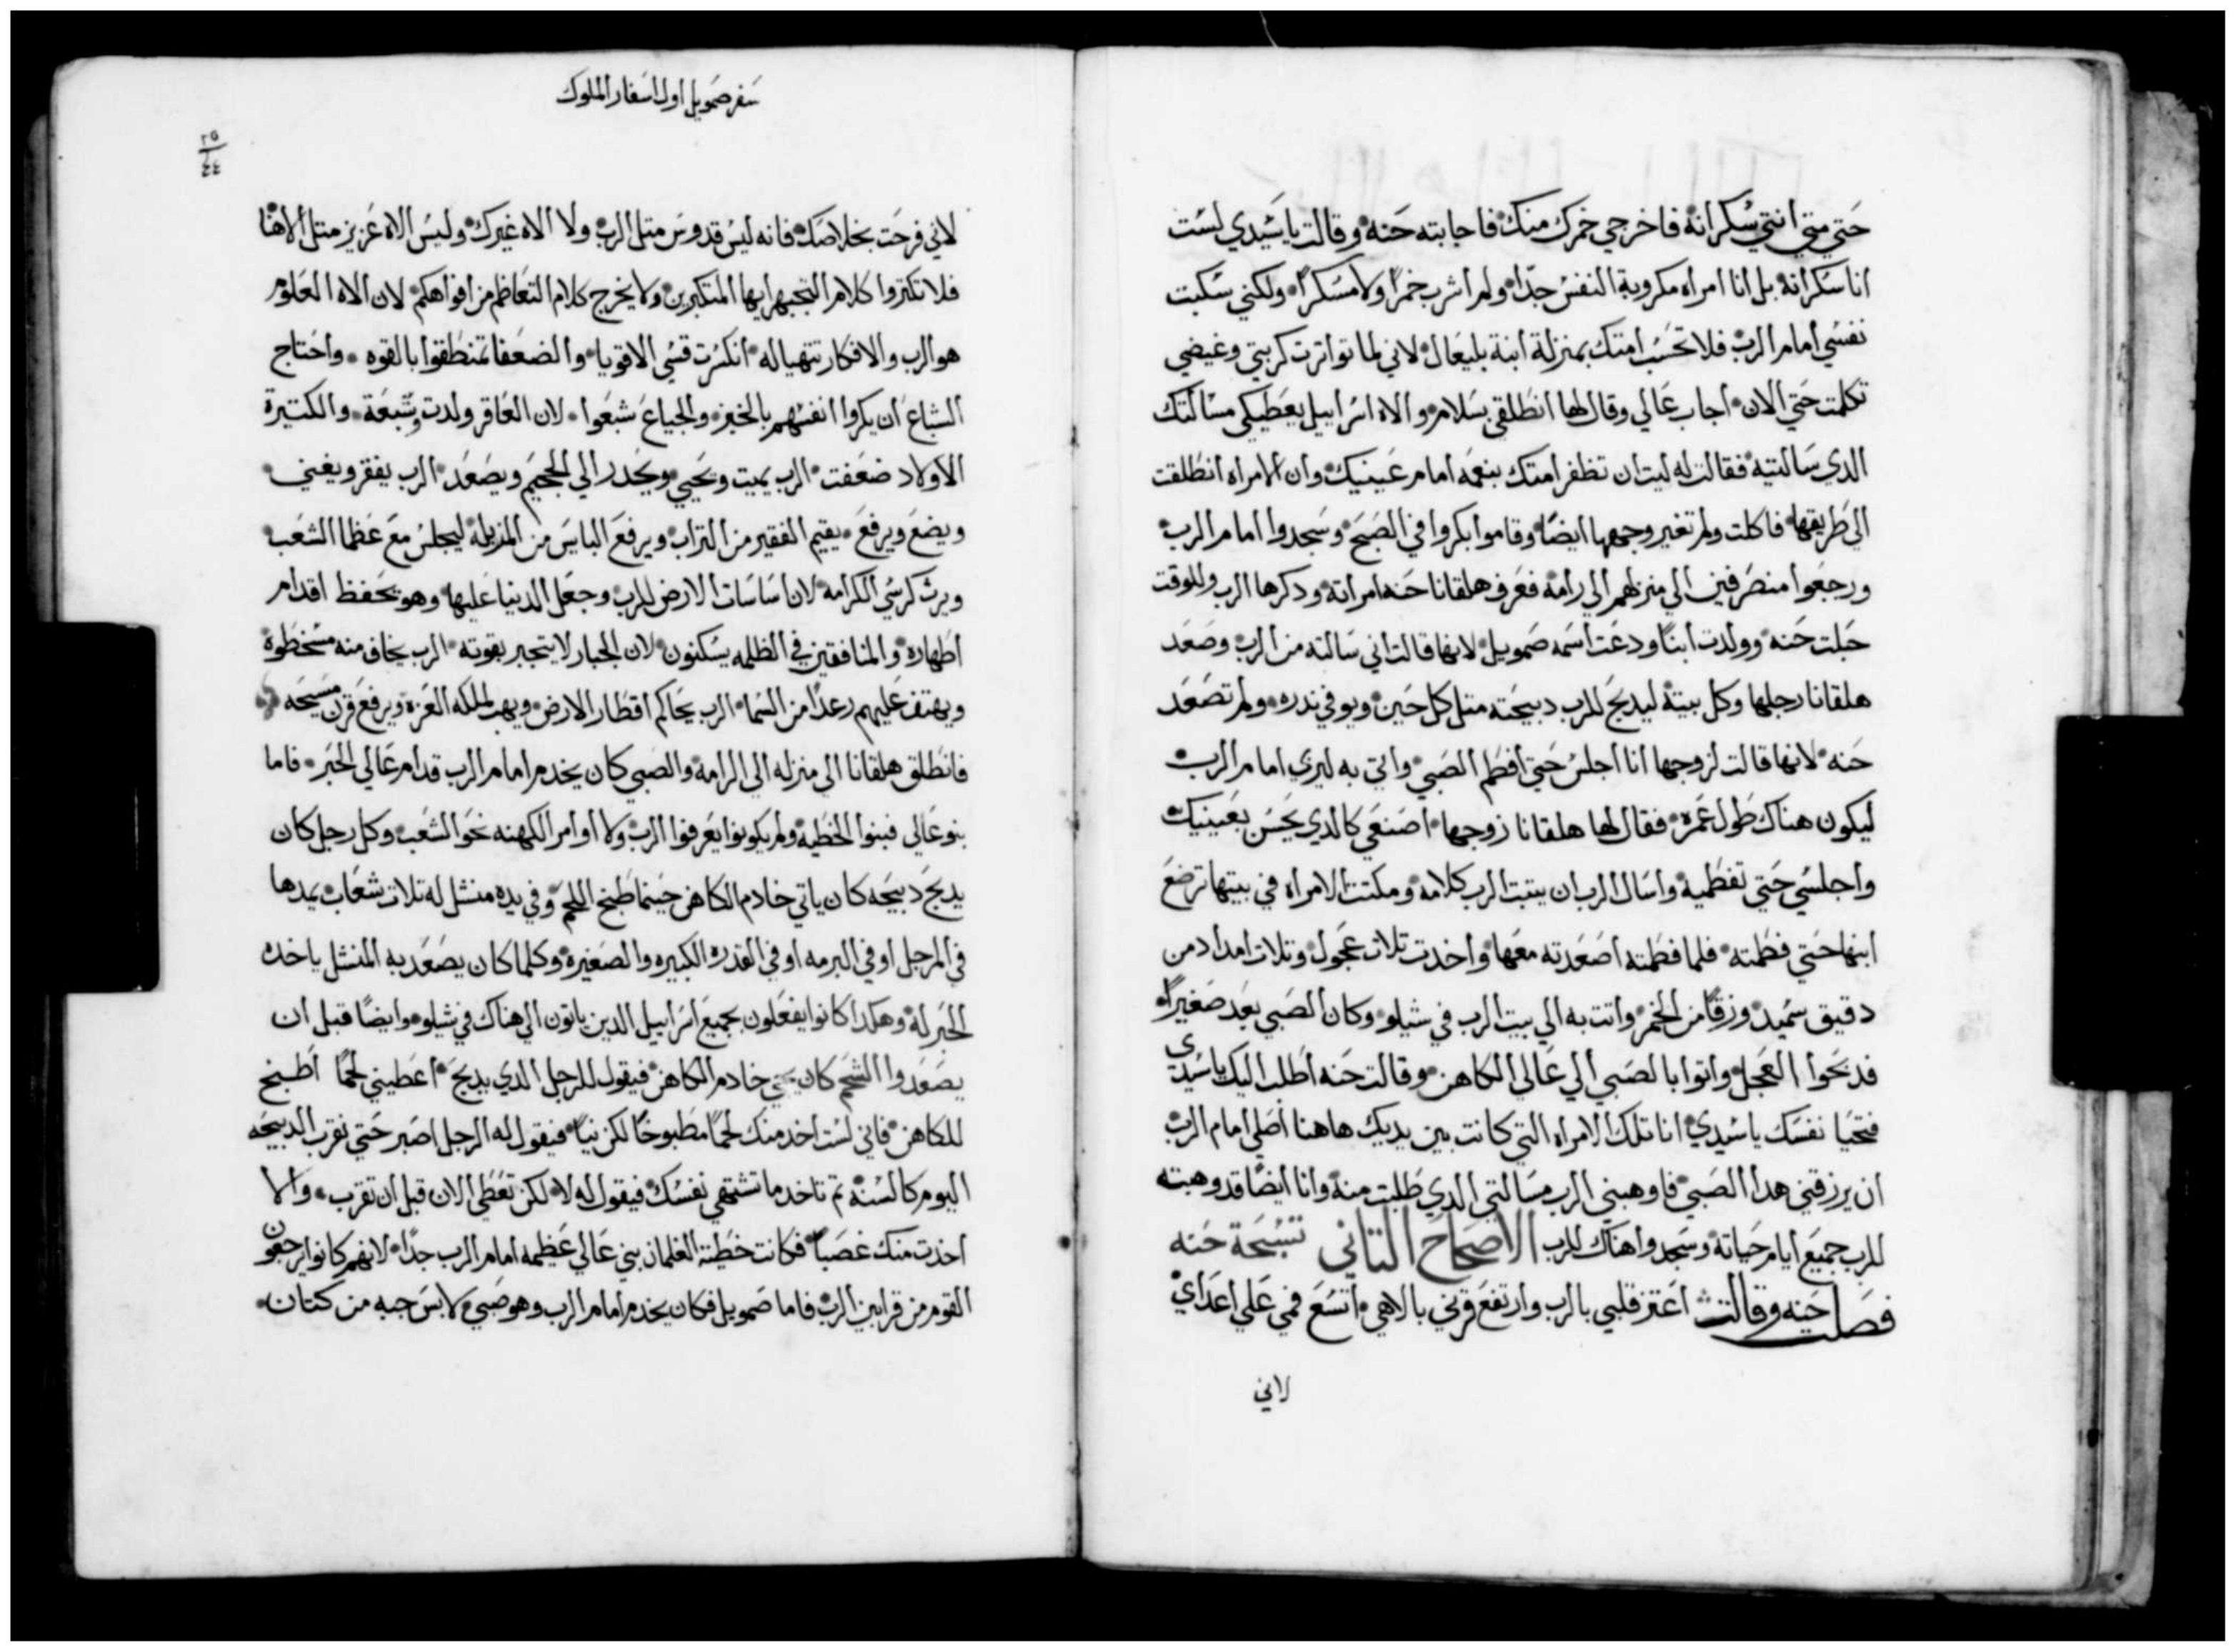 حتي متي انتي سكرانة فاخرجي خمرك منك فاجابته حنه وقالت ياسيدي لست
انا سكرانة بل انا امراه مكروبة النفس جدًا ولم اشرب خمرًا ولا مسكرًا ولكني سكبت
نفسي امام الرب فلا تحسب امتك بمنزلة ابنة بليعال لاني لما تواترت كربتي وغيضي
تكلمت حتي الان اجاب عالي وقال لها انطلقي بسلام والاه اسراييل يعطيكي مسالتك
الدي سالتيه فقالت له ليت ان تظفر امتك بنعمه امام عينيك وان الامراه انطلقت
الي طريقها فاكلت ولم تغير وجهها ايضًا وقاموا بكروا في الصبح وسجدوا امام الرب
ورجعوا منصرفين الي منزلهم الي رامة فعرف هلقانا حنه امراته ودكرها الرب وللوقت
حبلت حنه وولدت ابنًا ودعت اسمه صمويل لانها قالت اني سالته من الرب وصعد
هلقانا رجلها وكل بيتة ليدبح للرب دبيحته متل كل حين ويوفي ندره ولم تصعد
حنه لانها قالت لزوجها انا اجلس حتي افطم الصبي واتي به ليري امام الرب
ليكون هناك طول عمره فقال لها هلقانا زوجها اصنعي كالدي يحسن بعينيك
واجلسي حتي تفطميه واسال الرب ان يتبت الرب كلامه ومكتت الامراه في بيتها ترضع
ابنها حتي فطمته فلما فطمته اصعدته معها واخدت تلات عجول وتلات امداد من
دقيق سميد وزقًا من الخمر واتت به الي بيت الرب في شيلو وكان الصبي بعد صغيرًا
فدبحوا العجل واتوا بالصبي الي عالي الكاهن وقالت حنه اطلب اليك ياسيدي
فتحيا نفسك ياسيدي انا تلك الامراه التي كانت بين يديك هاهنا اصلي امام الرب
ان يرزقني هدا الصبي فاوهبني الرب مسالتي الدي طلبت منه وانا ايضًا قد وهبته
للرب جميع ايام حياتة وسجدوا هناك للرب الاصحاح التاني تسبحة حنه
فصلت حنه وقالت اعتز قلبي بالرب وارتفع قرني بالاهي اتسع فمي علي اعداي
لاني
سفر صمويل اول اسفار الملوك
٢٥
٤٤
لاني فرحت بخلاصك فانه ليس قدوس متل الرب ولا الاه غيرك وليس الاه عزيز متل الاهنا
فلا تكتروا كلام التجبهر ايها المتكبرين ولا يخرج كلام التعاظم من افواهكم لان الاه العلوم
هو الرب والافكار تتهيا له انكسرت قسي الاقويا والضعفا تمنطقوا بالقوه واحتاج
الشباع ان يكروا انفسهم بالخبز والجياع شبعوا لان العاقر ولدت وتسبعة والكتيرة
الاولاد ضعفت الرب يميت ويحيي ويحدر الي الجحيم ويصعد الرب يفقر ويغني
ويضع ويرفع يقيم الفقير من التراب ويرفع الباس من المزبلة ليجلس مع عظما الشعب
ويرت كرسي الكرامة لان اساسات الارض للرب وجعل الدنيا عليها وهو يحفظ اقدام
اطهاره والمنافقين في الظلمه يسكنون لان الجبار لا يتجبر بقوته الرب يخاف منه مسخطوه
ويهتف عليهم رعدًا من السما الرب يحاكم اقطار الارض ويهب لملكه العزة ويرفع قرن مسيحه
فانطلق هلقانا الي منزله الي الرامة والصبي كان يخدم امام الرب قدام عالي الحبر فاما
بنو عالي فبنوا الخطية ولم يكونوا يعرفوا الرب ولا اوامر الكهنه نحو الشعب وكل رجل كان
يدبح دبيحه كان ياتي خادم الكاهن حينما طبخ اللحم وفي يده منشل له تلات شعاب يمدها
في المرجل او في البرمه او في القدره الكبيره والصغيرة وكلما كان يصعد به المنشل ياخده
الحبر له وهكدا كانوا يفعلون بجميع اسراييل الدين ياتون الي هناك في شيلو وايضًا قبل ان
يصعدوا الشحم كان يجي خادم الكاهن فيقول للرجل الدي يدبح اعطيني لحمًا اطبخ
للكاهن فاني لست اخد منك لحمًا مطبوخًا لكن نيًا فيقول له الرجل اصبر حتي نقرب الدبيحه
اليوم كالسنة تم تاخد ما تشتهي نفسك فيقول له لا لكن تعطي الان قبل ان تقرب والا
اخدت منك غصبًا فكانت خطية الغلمان بني عالي عظيمه امام الرب جدًا لانهم كانوا يرجعون
القوم من قرابين الرب فاما صمويل فكان يخدم امام الرب وهو صبي لابس جبه من كتان